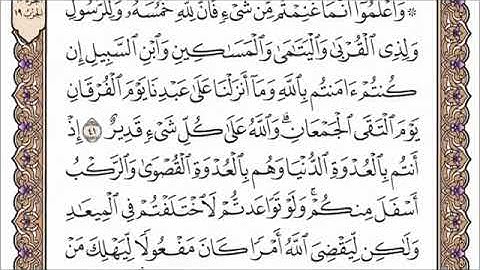 ۞ وَٱعۡلَمُوٓاْ أَنَّمَا غَنِمۡتُم مِّن شَيۡءٖ فَأَنَّ لِلَّهِ خُمُسَهُۥ وَلِلرَّسُولِ
وَلِذِي ٱلۡقُرۡبَىٰ وَٱلۡيَتَٰمَىٰ وَٱلۡمَسَٰكِينِ وَٱبۡنِ ٱلسَّبِيلِ إِن
كُنتُمۡ ءَامَنتُم بِٱللَّهِ وَمَآ أَنزَلۡنَا عَلَىٰ عَبۡدِنَا يَوۡمَ ٱلۡفُرۡقَانِ
يَوۡمَ ٱلۡتَقَى ٱلۡجَمۡعَانِۗ وَٱللَّهُ عَلَىٰ كُلِّ شَيۡءٖ قَدِيرٌ ٤١ إِذۡ
أَنتُم بِٱلۡعُدۡوَةِ ٱلدُّنۡيَا وَهُم بِٱلۡعُدۡوَةِ ٱلۡقُصۡوَىٰ وَٱلرَّكۡبُ
أَسۡفَلَ مِنكُمۡۚ وَلَوۡ تَوَاعَدتُّمۡ لَٱخۡتَلَفۡتُمۡ فِي ٱلۡمِيعَٰدِ
وَلَٰكِن لِّيَقۡضِيَ ٱللَّهُ أَمۡرٗا كَانَ مَفۡعُولٗا لِّيَهۡلِكَ مَنۡ